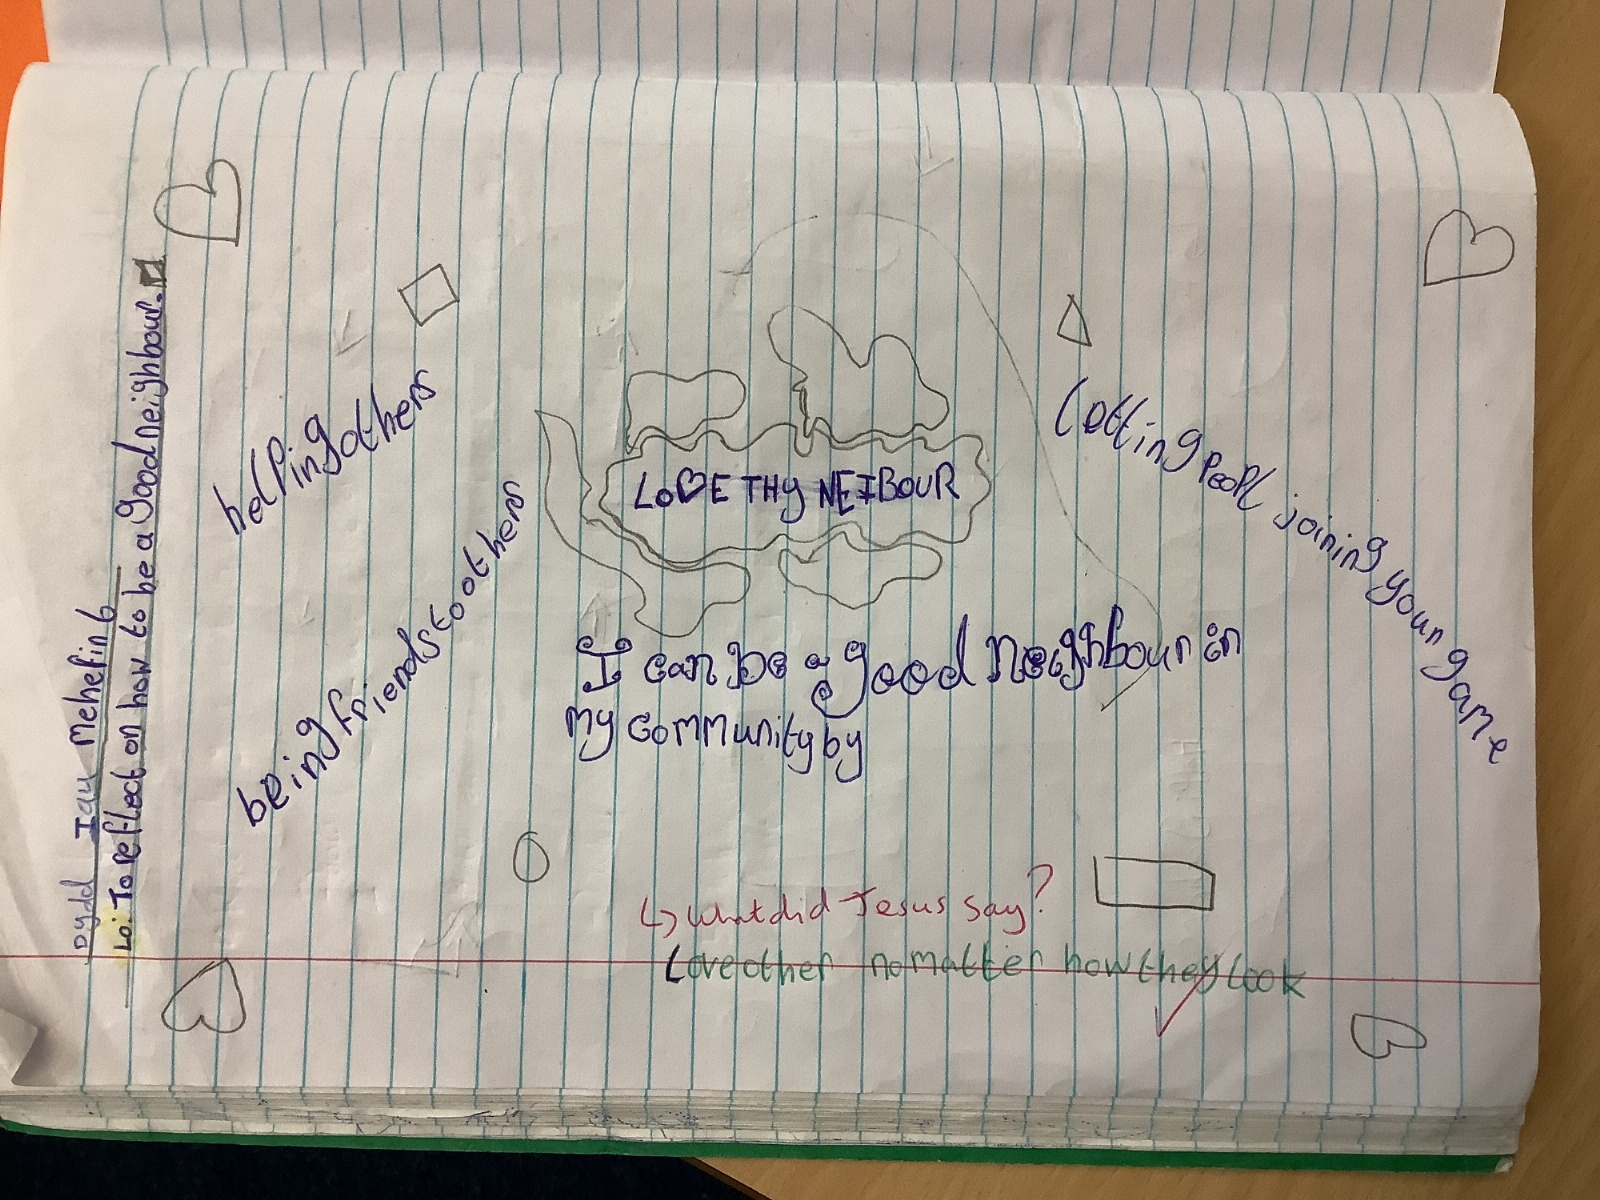 Dydd Iau Mehefin 6
Lo: To reflect on how to be a good neighbour.
helping others
being friends to others
LOVE THY NEIBOUR
Letting peopl joining your game
I can be a good neighbour in
my community by
↳ What did Jesus say?
Love other no matter how they look